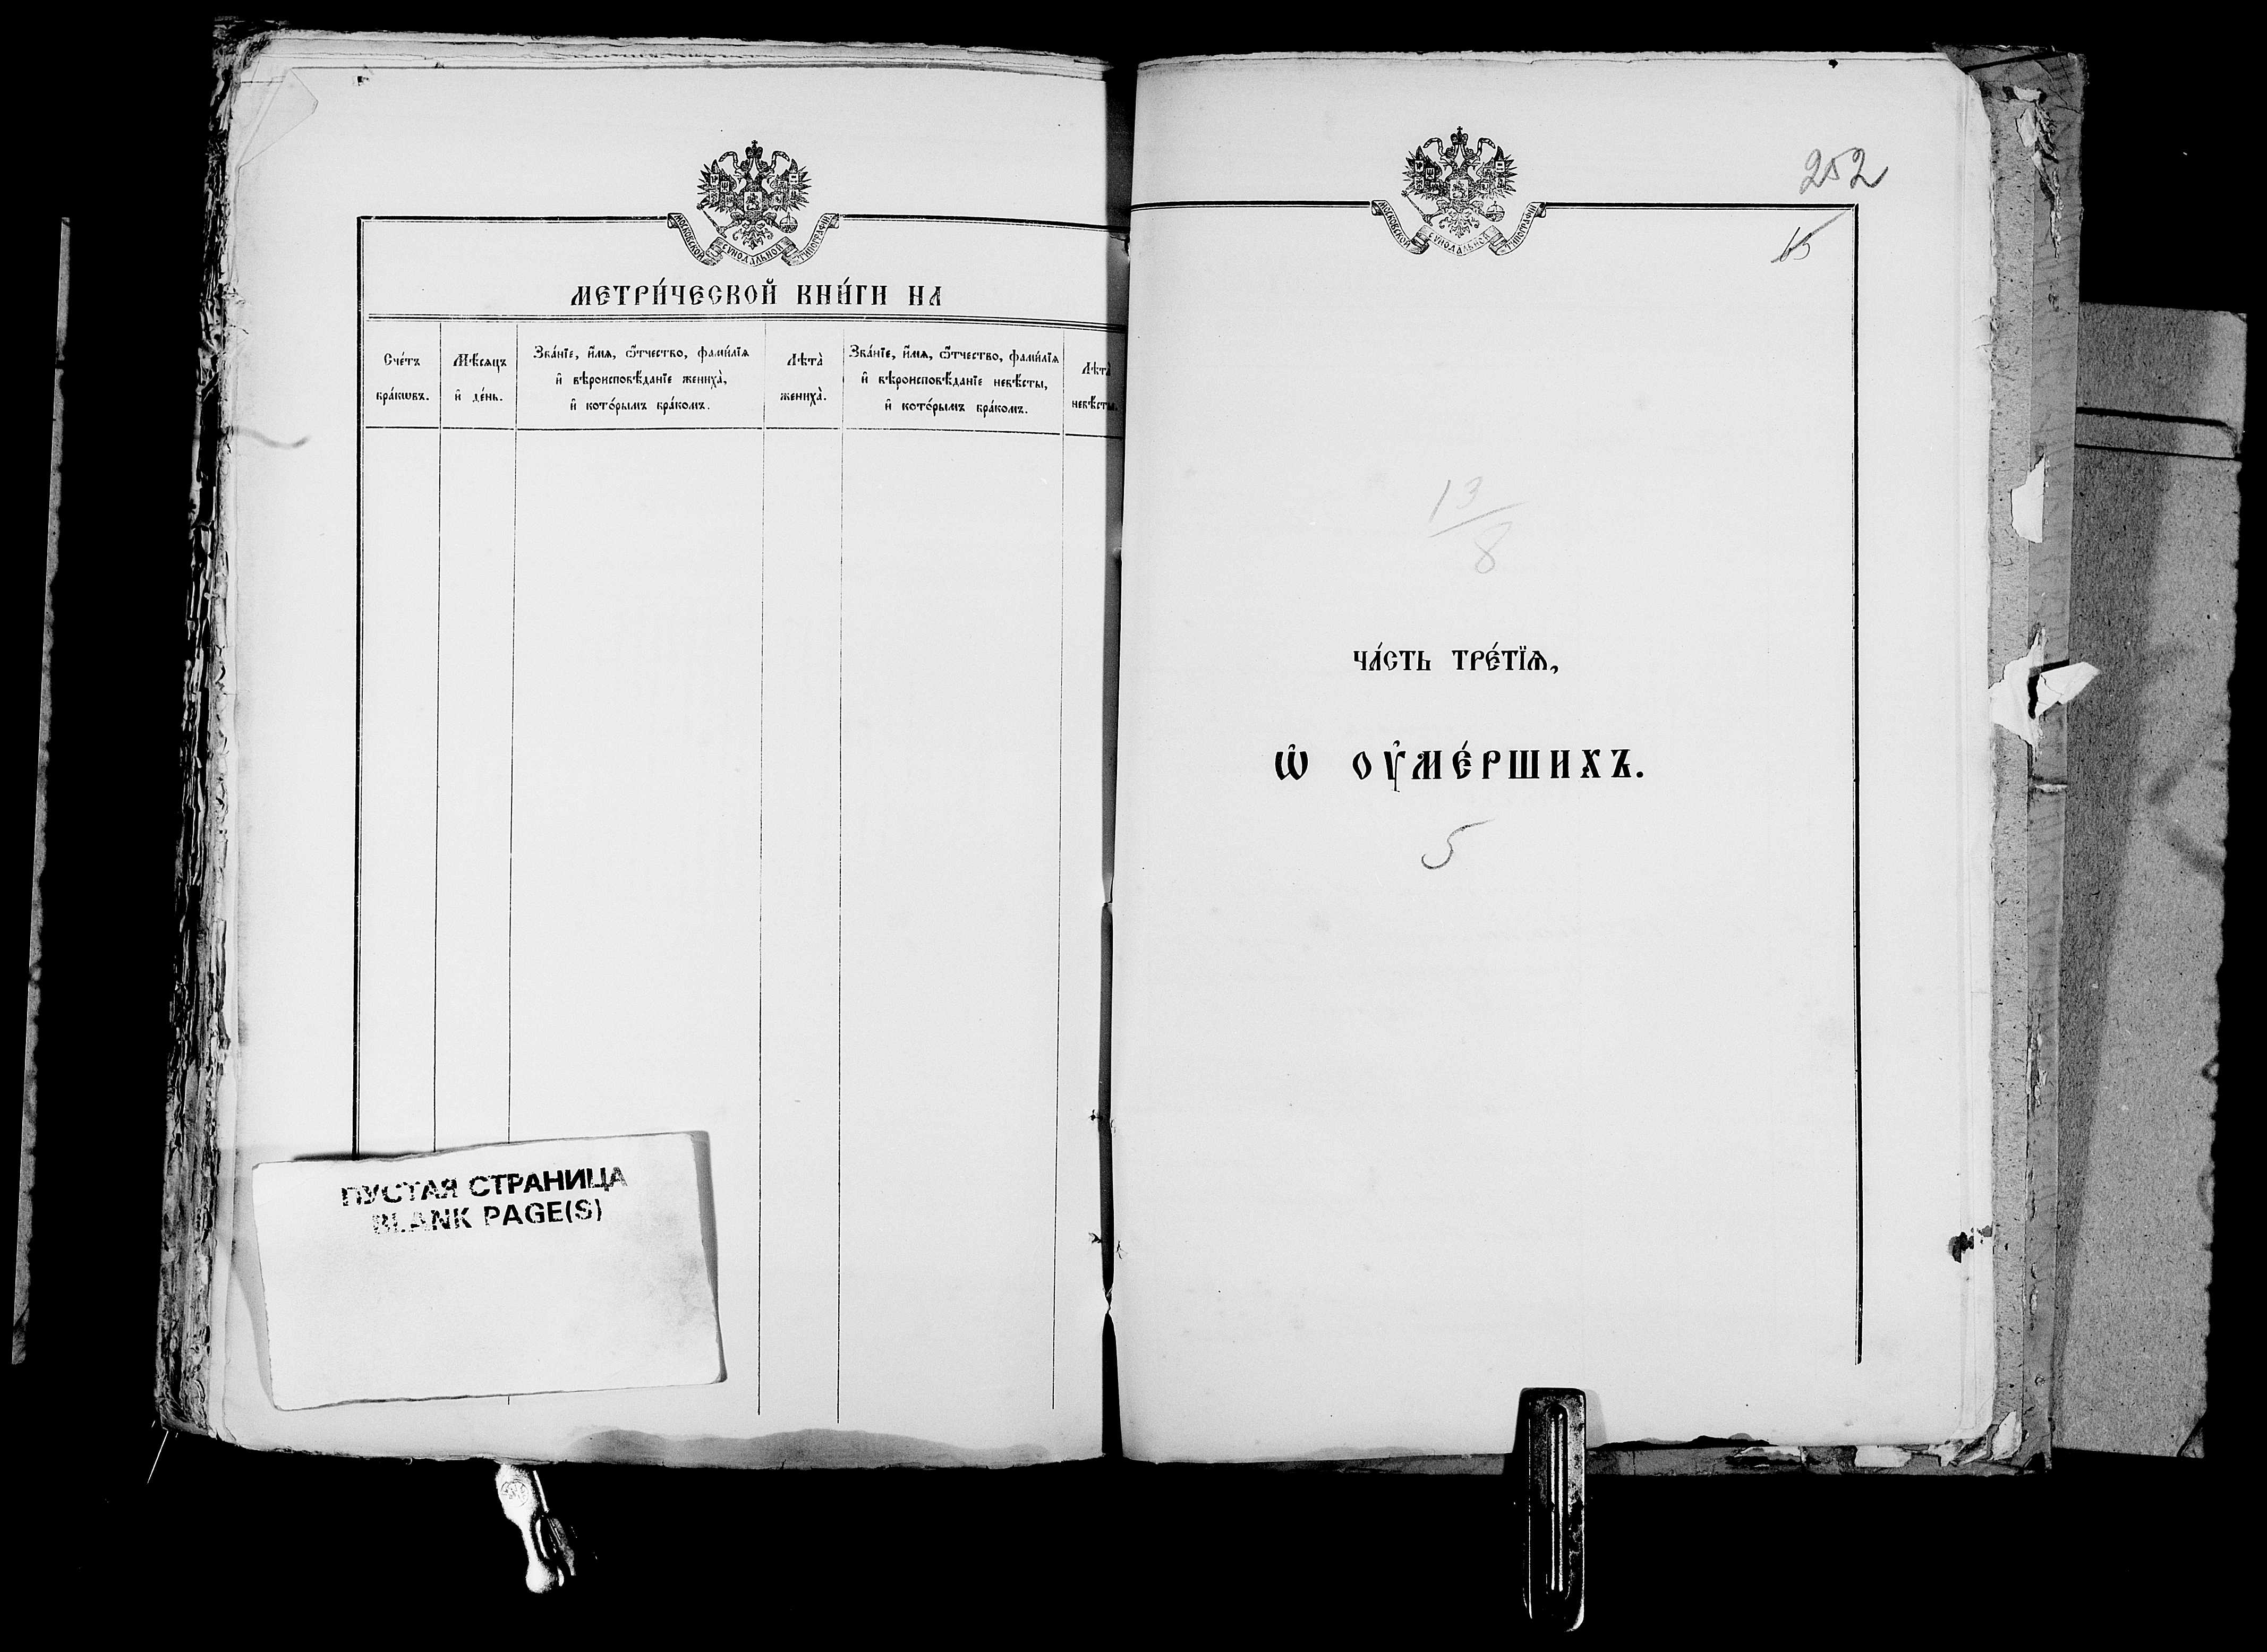 МОСКОВСКОЙ СѴНОДАЛЬНОЙ ТИПОГРАФІИ
МЕТРИ́ЧЕСКОЙ КНИ́ГИ НА
Сче́тъ бра́кѡвъ.
Мѣ́сяцъ и҆ де́нь.
Зва́нїе, и҆́мѧ, ѻ҆́тчество, фами́лїѧ
и҆ вѣроисповѣ́данїе жениха̀,
и҆ кото́рымъ бра́комъ.
Лѣта̀ жениха̀.
Зва́нїе, и҆́мѧ, ѻ҆́тчество, фами́лїѧ
и҆ вѣроисповѣ́данїе невѣ́сты,
и҆ кото́рымъ бра́комъ.
Лѣта̀ невѣ́сты.
ПУСТАЯ СТРАНИЦА
BLANK PAGE(S)
252
МОСКОВСКОЙ СѴНОДАЛЬНОЙ ТИПОГРАФІИ
13/8
ЧА́СТЬ ТРЕ́ТЇѦ,
Ѡ҆ ОУ҆МЕ́РШИХЪ.
5